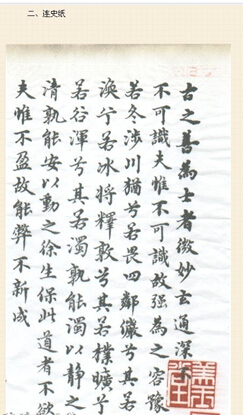 二、连史纸
古之善為士者微妙玄通深不
不可識夫惟不可識故强為之容豫
若冬涉川猶兮若畏四鄰儼兮其若
渙兮若冰將釋敦兮其若樸曠兮
若谷渾兮其若濁孰能濁以静之
清孰能安以動之徐生保此道者不欲
夫惟不盈故能弊不新成